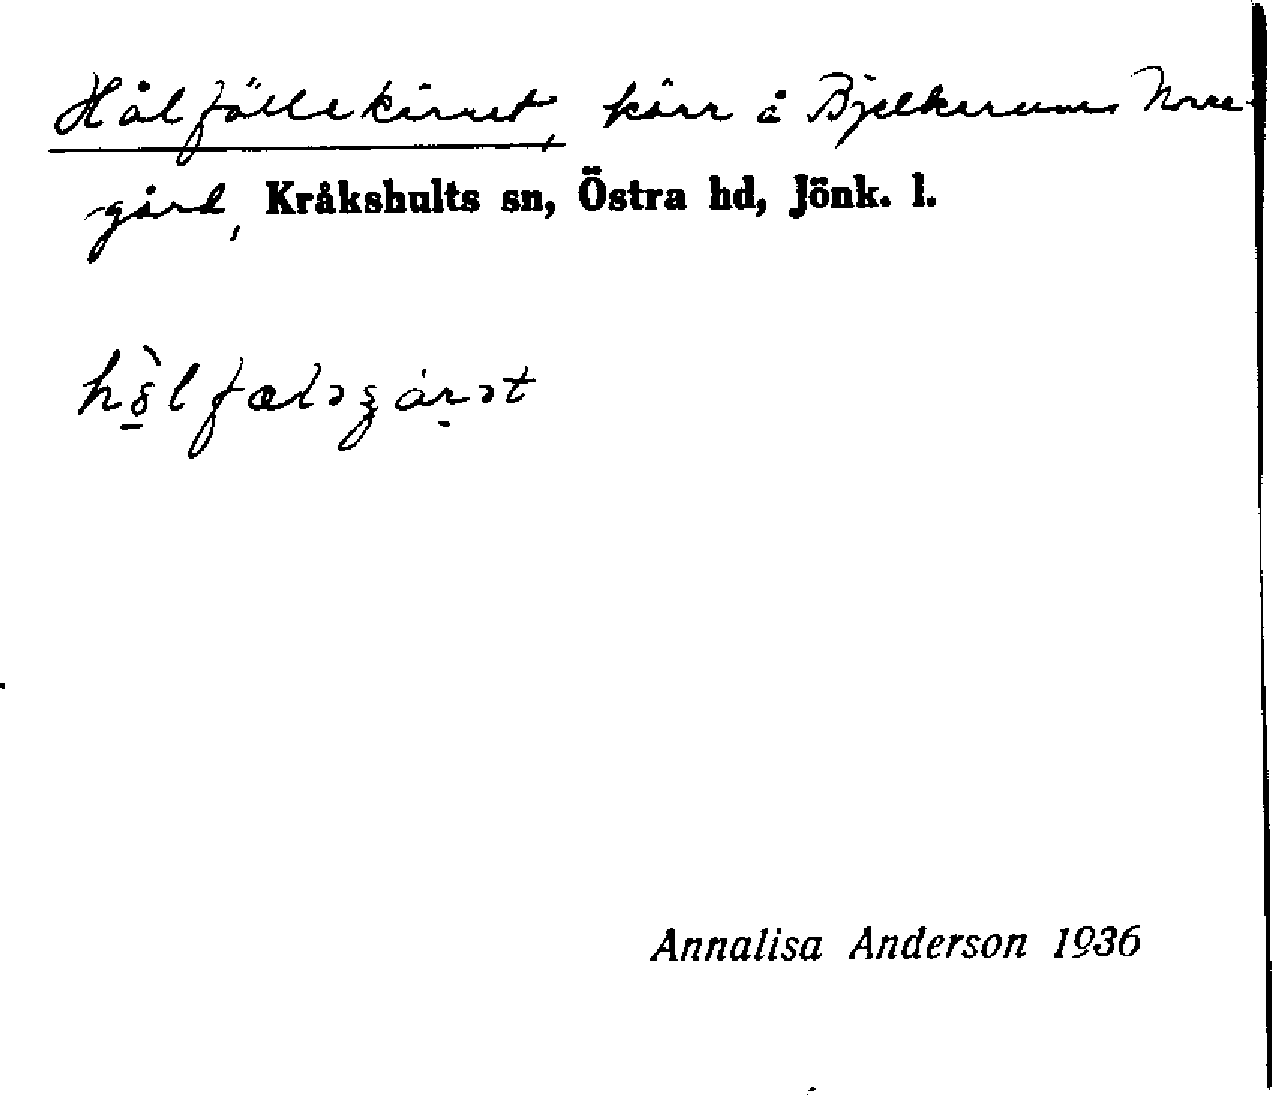 Hålfällekärret, kärr å Bjelkerums Norre-
gård, Kråkshults sn, Östra hd, Jönk. l.
Annalisa Anderson 1936